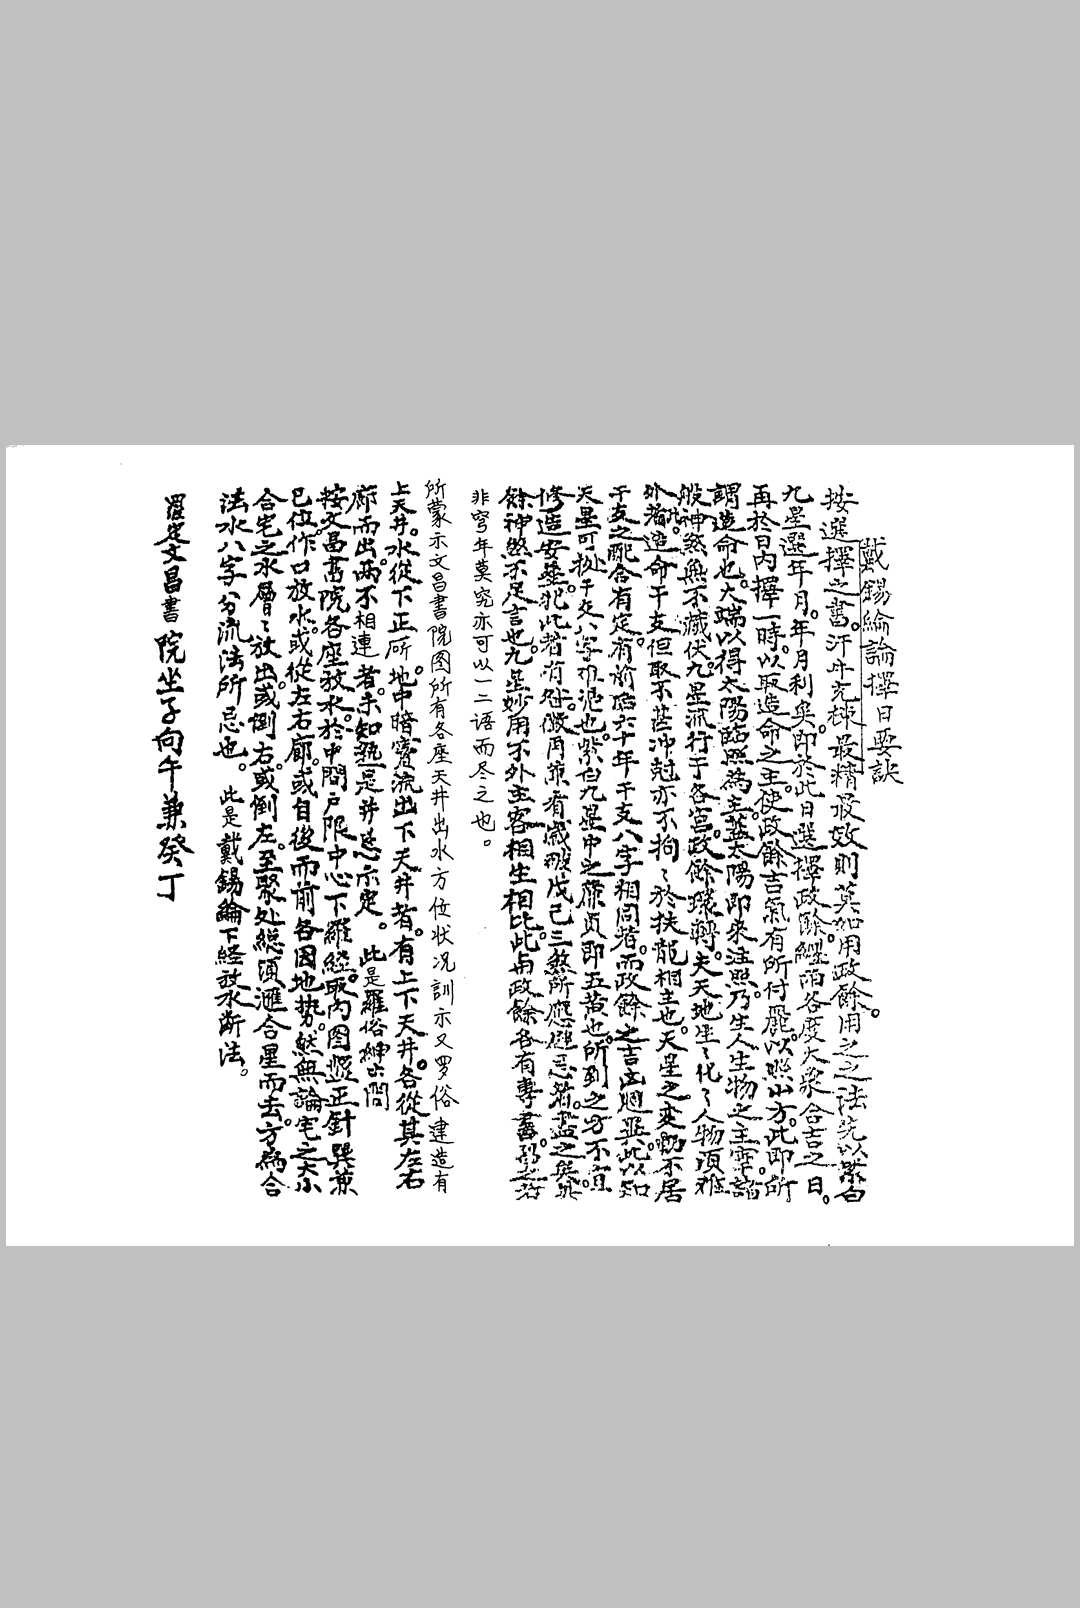 戴錫綸論擇日要訣
按選擇之書。汗牛充棟最精最效則莫如用政餘。用之之法先以紫白
九星選年月。年月利矣。即於此日選擇政餘。經雨各度大象合吉之日。
再於日內擇一時。以取造命之主。使政餘吉氣有所付麗。以照山方。此即所
謂造命也。大端以得太陽臨照為主。蓋太陽即來注照。乃生人生物之主宰。諸
般神煞無不藏伏。九星流行于各宮。政餘環轉。夫天地生々化々人物須難
外此。者造命干支但取不荏冲尅亦不拘々於扶龍相主也。天星之变動不居
干支之配合有定。有前后六十年干支八字相同者。而政餘之吉凶迥異。此以知
天星可抛干支八字非泥也。紫白九星中之廉貞即五黄也。所到之方不宜
修造安葬。犯此者有咎。儆再示有歲破戊己三煞所應避忌者。盡之矣。其
餘神煞不足言也。九星妙用不外主客相生相比。此與政餘各有專書。習之者
非穷年莫究亦可以一二语而尽之也。
所蒙示文昌書院图所有各座天井出水方位状况訓示又罗俗建造有
上天井。水從下正所地中暗竇流出下天井者。有上下天井。各從其左右
廊而出。両不相連者。未知孰是并忌示定。此是羅俗紳士問
按文昌書院各座放水。於中間户限中心下羅經。取内图縫正針巽兼
巳位。作口放水。或從左右廊。或自後而前各因地势。然無論宅之大小
合宅之水層々放出。或倒右。或倒左。至聚处總須滙合星而去。方為合
法水八字分流法所忌也。此是戴錫綸下経放水断法。
羅定文昌書院坐子向午兼癸丁